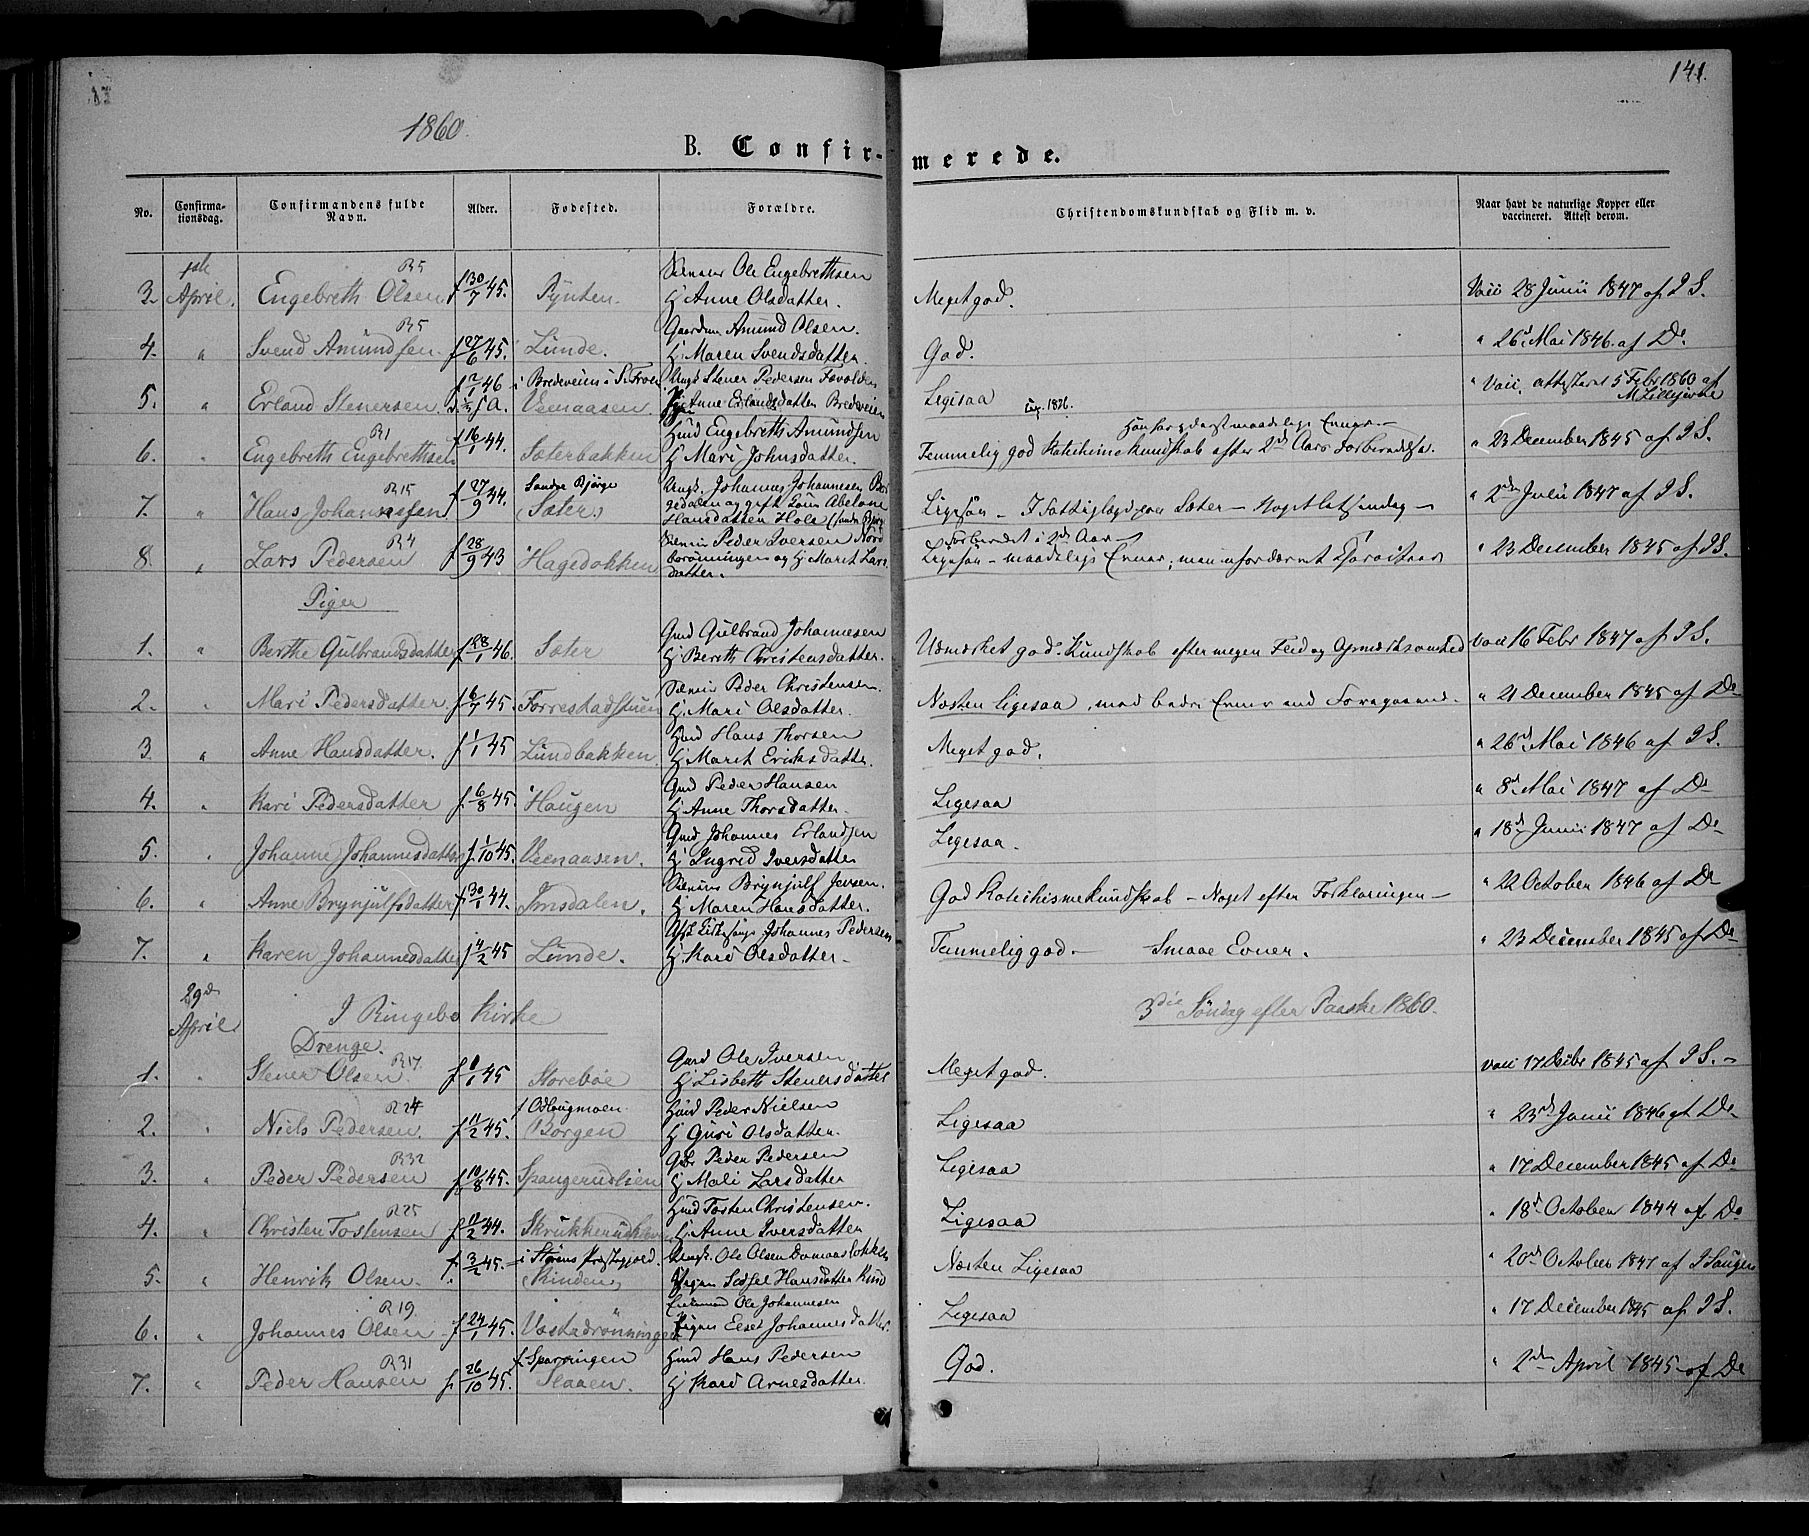 141.
1860.
B. Confirmerede.
No.
Confirmationsdag.
Confirmandens fulde Navn.
Alder.
Fødested.
Forældre.
Christendomskundskab og Flid m. v.
Naar havt de naturlige Kopper eller vaccineret. Attest derom.
R5
3. April. Engebreth Olsen f 30/7 45. Pynten. Ole Engebrethsen H Anne Olsdatter. Meget god. Vaci 28 Junii 1847 af I S.
R5
4. " Svend Amundsen. f 27/6 45. Lunde. Gaardm Amund Olsen. H Maren Svendsdatter God. " 26d Mai 1846. af Do
5. " Erland Stenersen. f 2/1 46 i Bredeveien i S. Fron Veenaasen. Ungk. Stener Pedersen Anne Erlandsdatter Bredeveien Ligesaa " Vaci attesteret 5 Febr 1860 af
R1
6. " Engebreth Engebrethsen f 16/1 44. Sæterbakken Huusmd Engebreth Amundsen H Mari Johnsdatter. Temmelig god Katechismekundskab efter 2d Aars Forberedelse. " 23 December 1845 af I S.
R15
7. " Hans Johannessen f 27/9 44. Søndre Bjørge Sæter Ungk. Johannes Johannesen Hansdatter Hole Ligesaa - I Fattiglægd paa Sæter - Noget letsindig - " 2den Julii 1847 af I S.
R4
8. " Lars Pedersen f 28/9 43 Hagedokken Peder Iversen Nord og H Marit Larsdatter. Forberedet i 2de Aar Ligesaa - maadelige Evner; " 23 December 1845 af I S.
Piger
1. " Berthe Gulbrandsdatter f 28/1 46. Sæter Gmd Gulbrand Johannesen H Bereth Christensdatter. Udmærket god Kundskab efter megen Flid og Opmærksomhed vaci 16 Febr 1847 af I S.
2. " Mari Pedersdatter f 6/7 45. Forrestadstuen Peder Christensen. H Mari Olsdatter. Næsten Ligesaa, med bedre Evner end Foregaaende. " 21 December 1845 af Do
3. " Anne Hansdatter. f 1/1 45 Lundbakken Huusmd Hans Thorsen H Marit Eriksdatter. Meget god. " 26d Mai 1846 af I S.
4. " Kari Pedersdatter f 6/8 45. Haugen Gmd Peder Hansen H Anne Thorsdatter Ligesaa " 8d Mai 1847 af Do
5. " Johanne Johannesdatter f 1/10 45. Veenaasen. Gmd Johannes Erlandsen H Ingrid Iversdatter Ligesaa. " 18d Junii 1847 af Do
6. " Anne Brynjulfsdatter f 30/1 44. Imsdalen. Brynjulf Jensen. H Maren Hansdatter. God Katechismekundskab - Noget efter Forklaringen - " 22 October 1846 af Do
7. " Karen Johannesdatter f 4/2 45 Lunde. Johannes Pedersen H. Kari Olsdatter - Temmelig god - Smaae Evner. " 23 December 1845 af Do
29d April
I Ringebo Kirke
3die Søndag efter Paaske 1860.
Drenge.
R17
1. " Stener Olsen. f 1/1 45 Storebøe Gmd Ole Iversen H Lisbeth Stenersdatter Meget god. vaci 17 Decbr 1845 af I S. -
R24
2. " Niels Pedersen. f 11/2 45. f Odlougmoen. Borgen Huusmd Peder Nielsen H Guri Olsdatter. Ligesaa " 23d Junii 1846 af Do
R32
3. " Peder Pedersen f 10/8 45. Spangerudlien Peder Pedersen H Mali Larsdatter Ligesaa " 17 December 1845 af Do
R25
4. " Christen Tostensen f 11/2 44. Skrukkerud Huusmd Tosten Christensen. H Anne Iversdatter Ligesaa " 18d October 1844 af Do
5. " Henrik Olsen. f. 3/2 45. i Størens Præstegjeld Kinden Ungk. Ole Olsen Pigen Hansdatter Kind Næsten Ligesaa " 20d October 1847 af
R19.
6. " Johannes Olsen f 24/1 45. Vastadrønningen Enkemand Ole Johannesen Pigen Eleset Johannesdatter. Ligesaa " 17 December 1845 af I S.
R31
7. " Peder Hansen f. 26/10 45. f Sparringen Flaaen. Huusmd Hans Pedersen H Kari Arnesdatter. God. " 2den April 1845 af Do